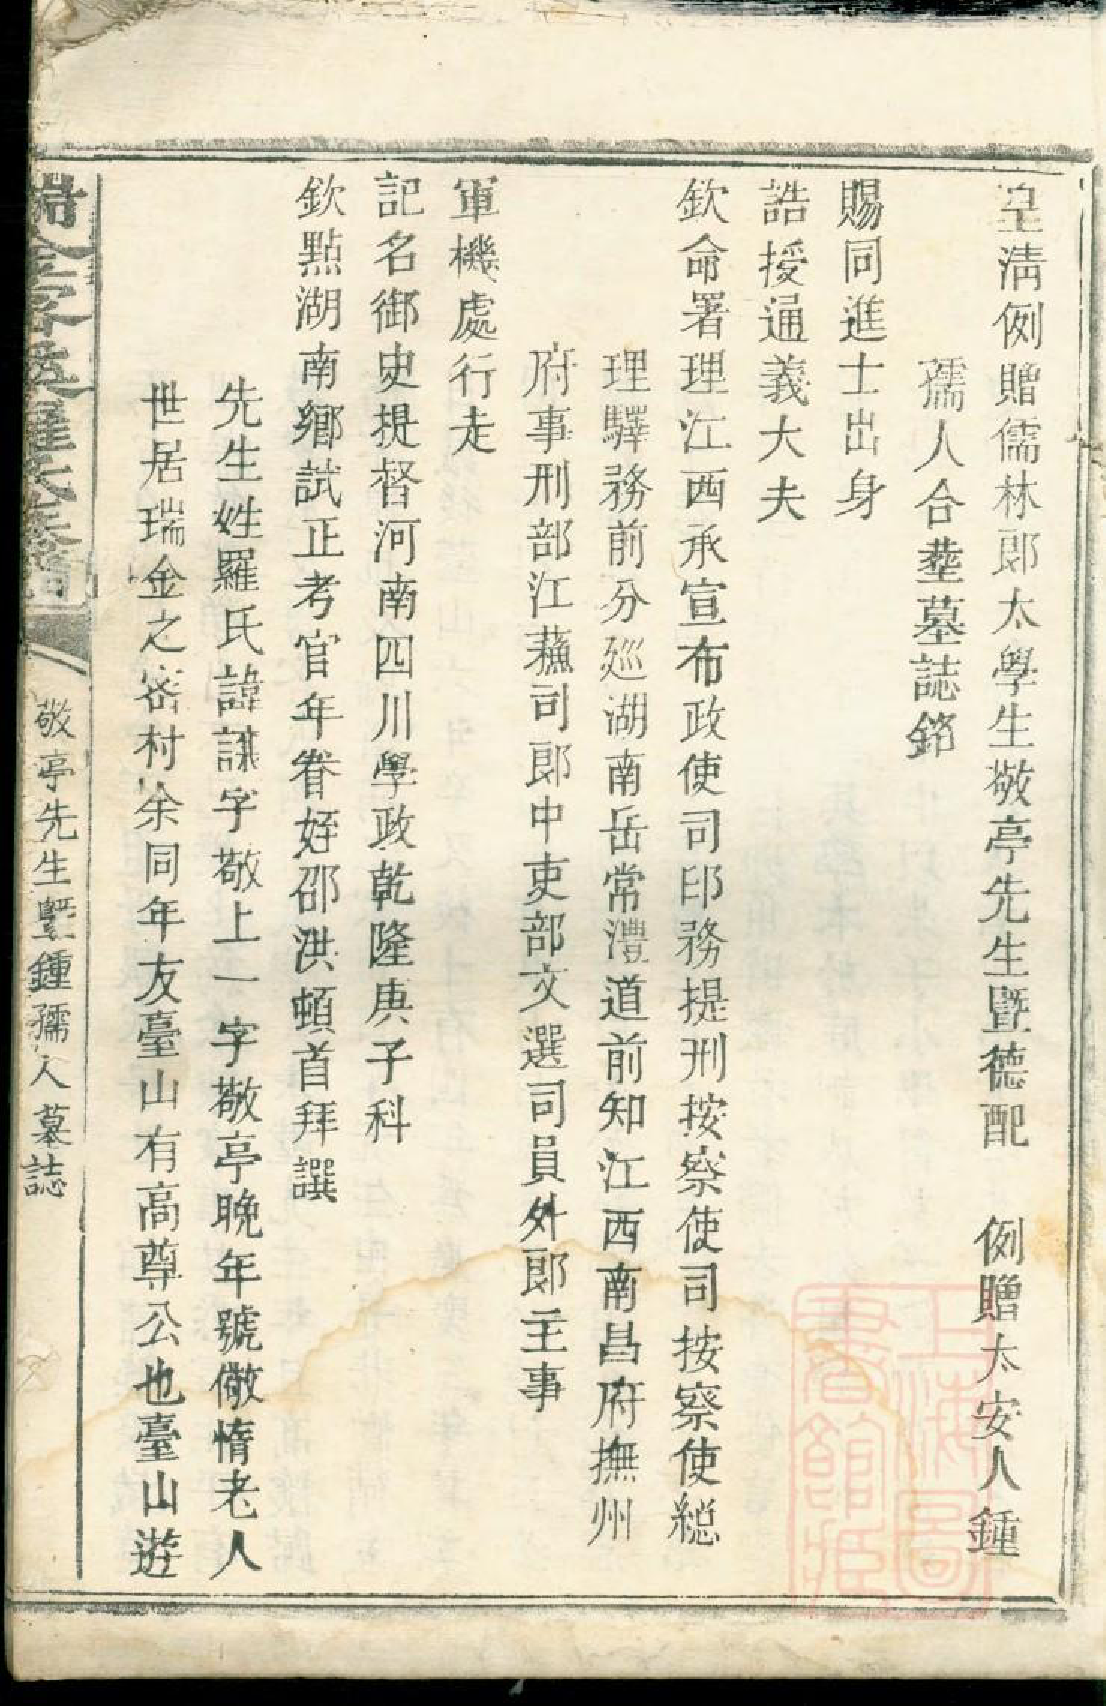 皇清例贈儒林郎太學生敬亭先生暨德配　例贈太安人鍾
孺人合塟墓誌銘
賜同進士出身
誥授通義大夫
欽命署理江西承宣布政使司印務提刑按察使司按察使縂
理驛務前分廵湖南岳常澧道前知江西南昌府撫州
府事刑部江蘓司郎中吏部文選司員外郎主事
軍機處行走
記名御史提督河南四川學政乾隆庚子科
欽點湖南鄉試正考官年眷姪邵洪頓首拜譔
先生姓羅氏諱謀字敬上一字敬亭晚年號儆惰老人
世居瑞金之密村余同年友臺山有高尊公也臺山遊
敬亭先生暨鍾孺人墓誌
上海圖書館藏